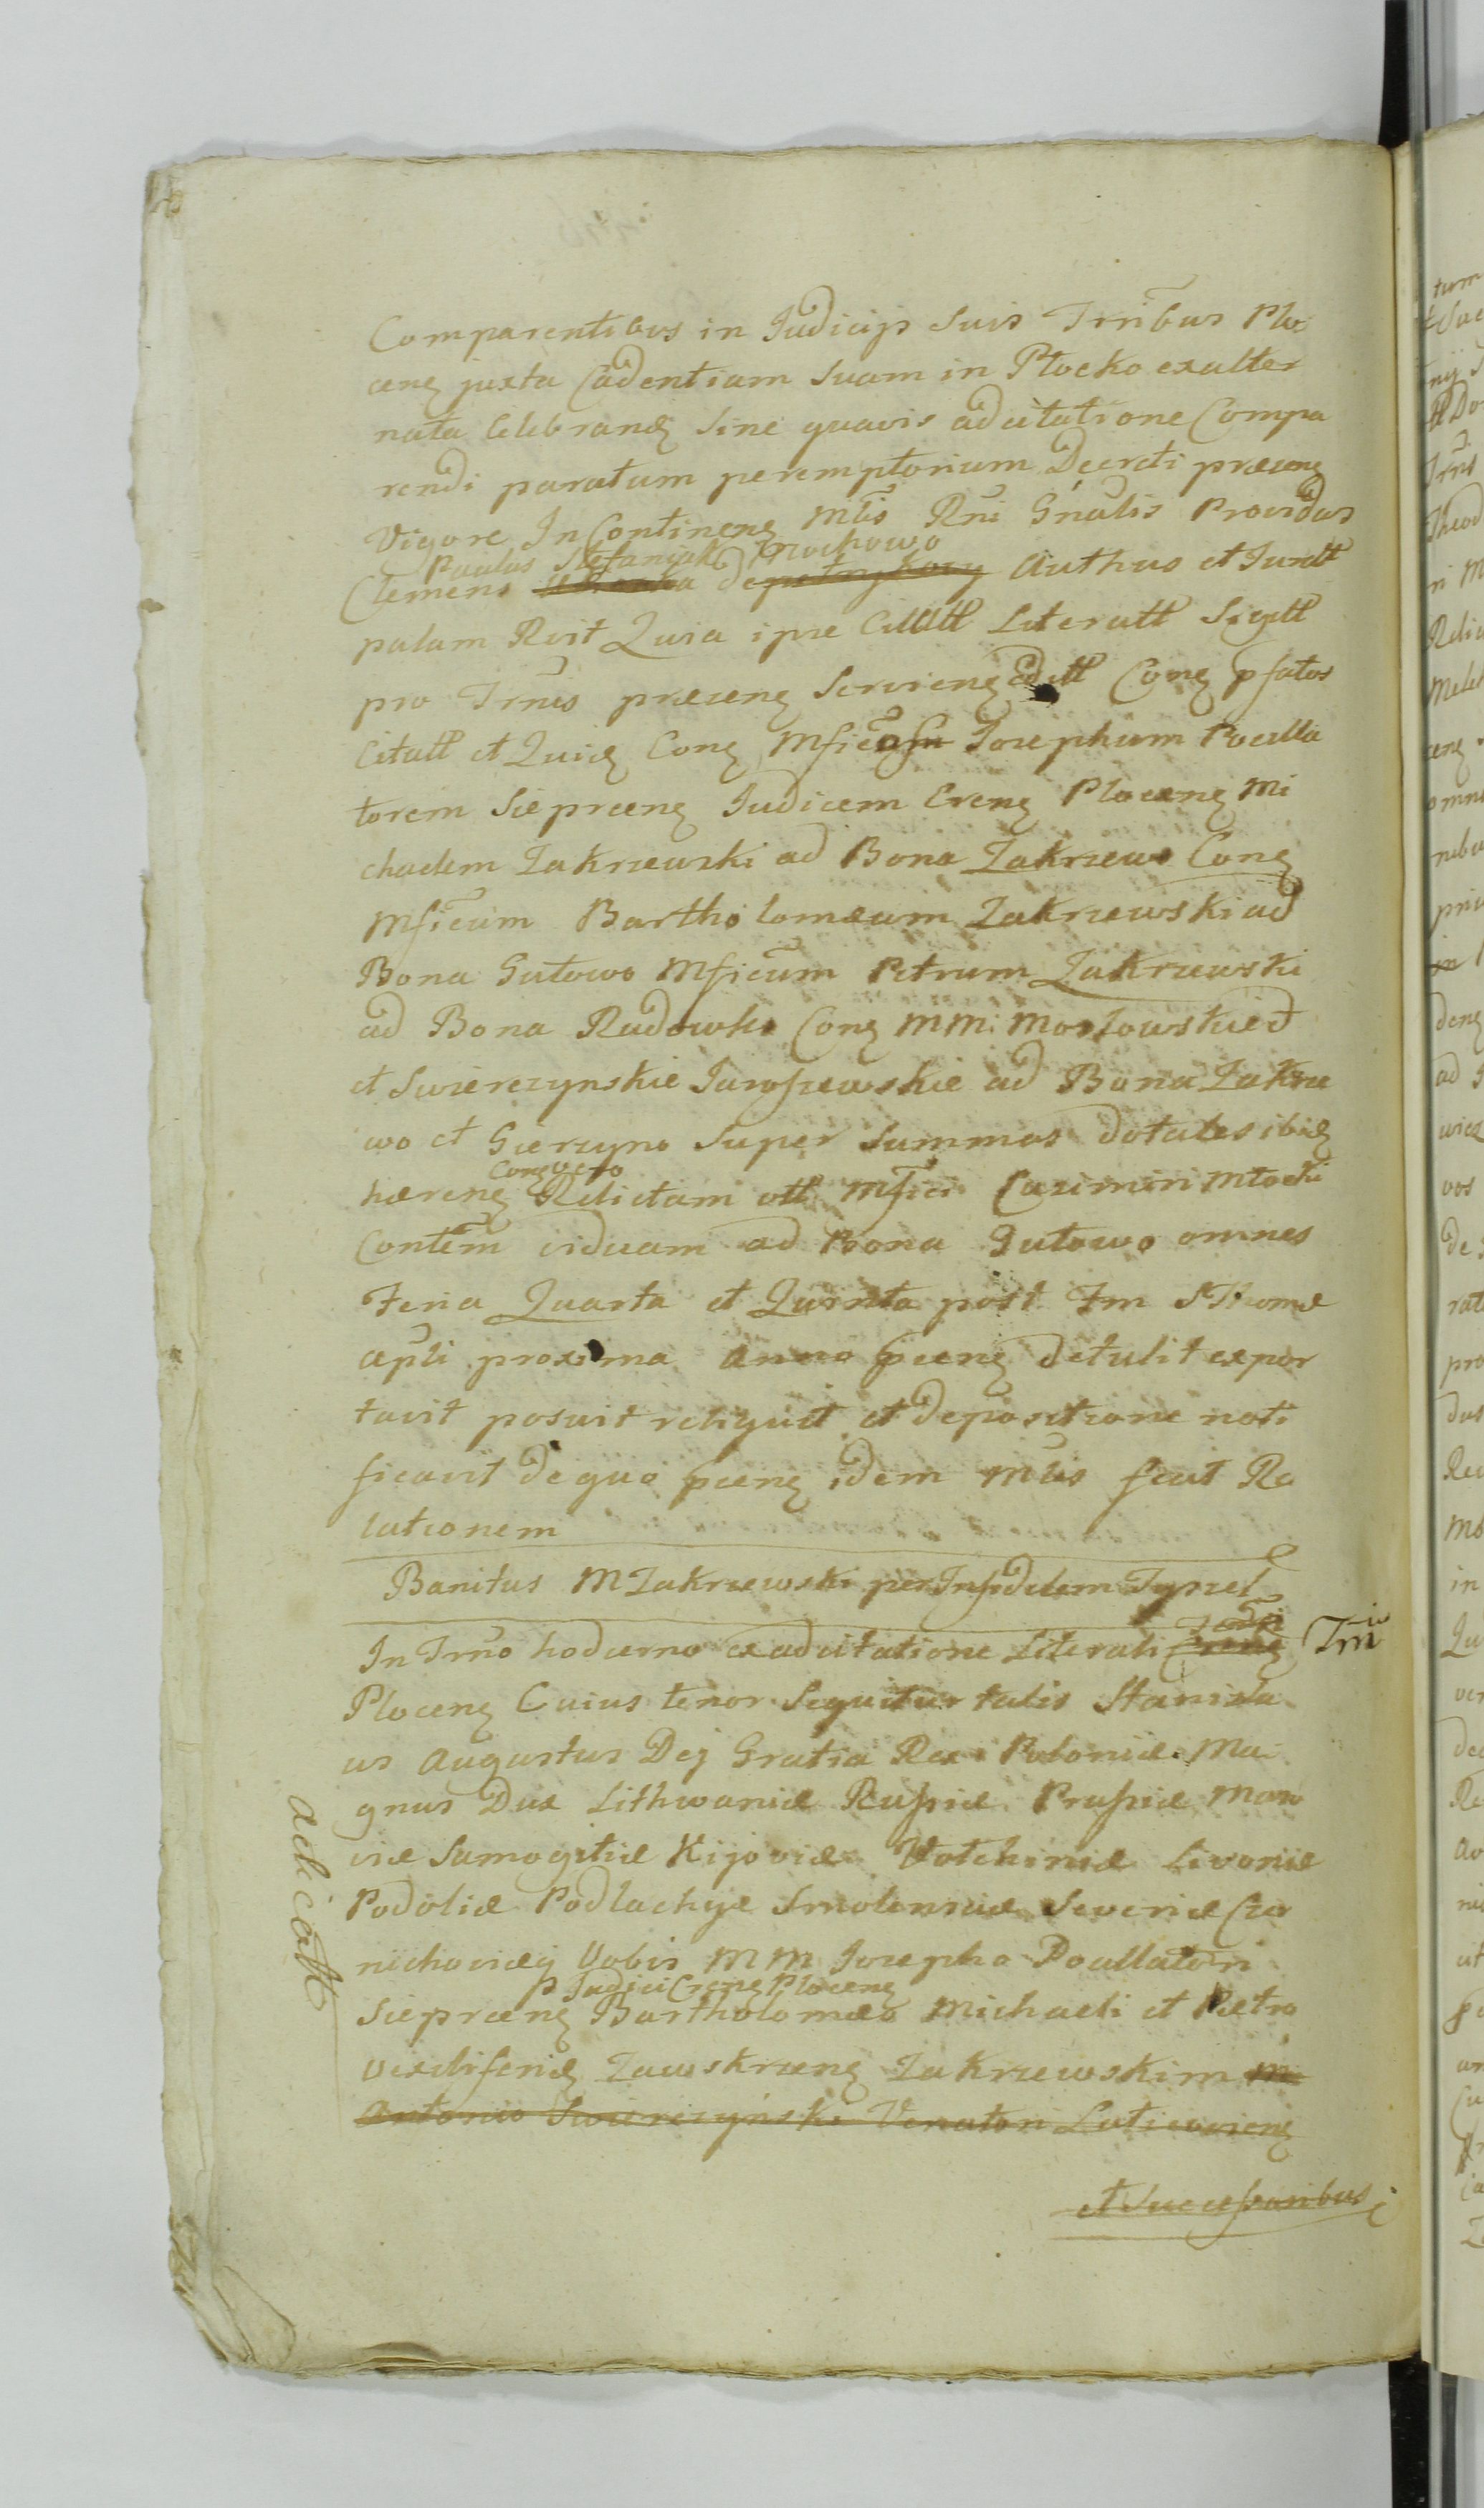 Comparentibus in Judicijs Suis Trnibus Plo
ceng juxta Cadentiam Suam in Płocko exalter
nata Celebrand Sine quavis adcitatione Compa
rendi paratum peremptorium Decreti præseng
Vigore In Contineng Mtis Rni Gnalis Providus
Paulus Stefaniak Prochowo
Clemens de Authus et Juratt
palam Rvit Quia ipse Literatt Sigill
pro Trnis præseng Servieng Cong pfatos
Citatt et Quid Cong Mficum Josephum Pocilla
torem Sieprceng Judicem Creng Ploceng Mi
chaelem Zakrzewski ad Bona Zakrzewo Cong
Mficum Bartholomæum Zakrzewski ad
Bona Gutowo Mficum Petrum Zakrzewski
ad Bona Radowko Cong MM: Morłowskie
et Swierczynskie Juroszewskie ad Bona Zakrze
wo et Gierzyno Super Summas dotales ibid
hæreng Cong vero Relictam ott Mfici Casimiri Młocki
Contem viduam ad Bona Gutowo omnes
Feria Quarta et Quinta post Fm S Thomæ
apli proxima anno pceng detulit expor
tavit posuit reliquit et depositione noti
ficavit de quo pceng idem Mtis fecit Re
lationem
Banitus M Zakrzewski per Infidelem Tyszel
In Trno hodierno ex adcitatione Literali Terri Trni
Ploceng Cuius tenor Sequitur talis Stanisla
us Augustus Dej Gratia Rex Poloniæ Ma
gnus Dux Lithwaniæ Rußiæ Prußiæ Maso
viæ Samogitiæ Kijoviæ Vołchiniæ Livoniæ
Podoliæ Podlachyæ Smolensciæ Severiæ Cze
nichoviæq Vobis MM Josepho Pocillatori
p Judici Creng Ploceng
Sieprceng Bartholomæo Michaeli et Petro
Vexiliferid Zawskrzeng Zakrzewskim M
Antonio Swierczynski Venatori Laticoviens
et Successoribus
adcitatt